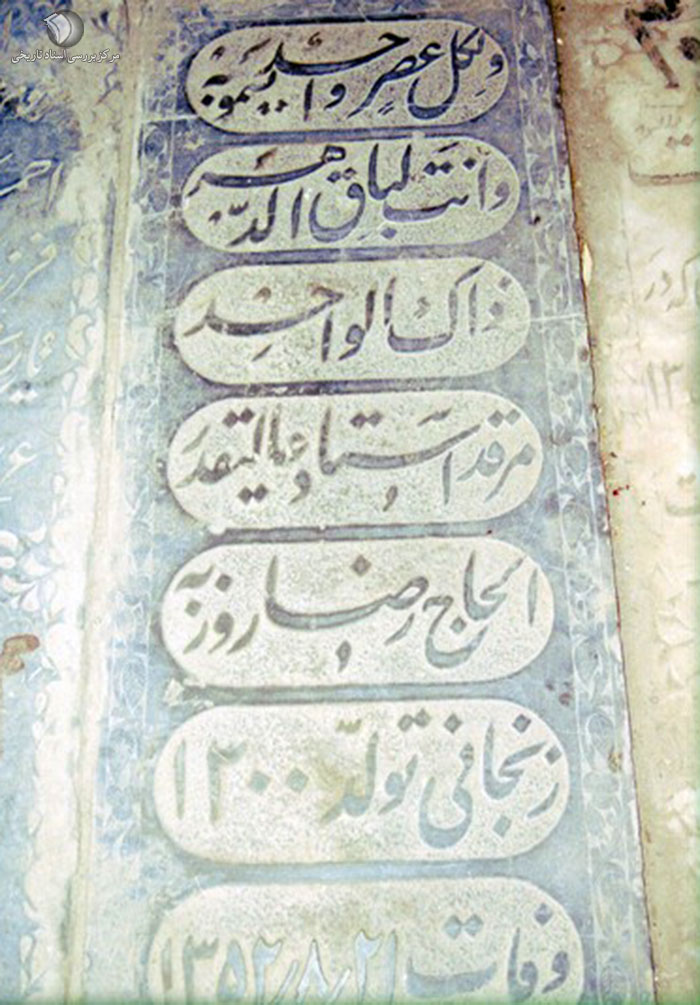 مرکز بررسی اسناد تاریخی
ولکل عصر واحد یسمو به
وانت لباقی الدهر
ذاک الواحد
مرقد استاد عالیقدر
الحاج رضا روزبه
زنجانی تولد ۱۳۰۰
وفات ۱۳۵۲٫۸٫۲۱
که در